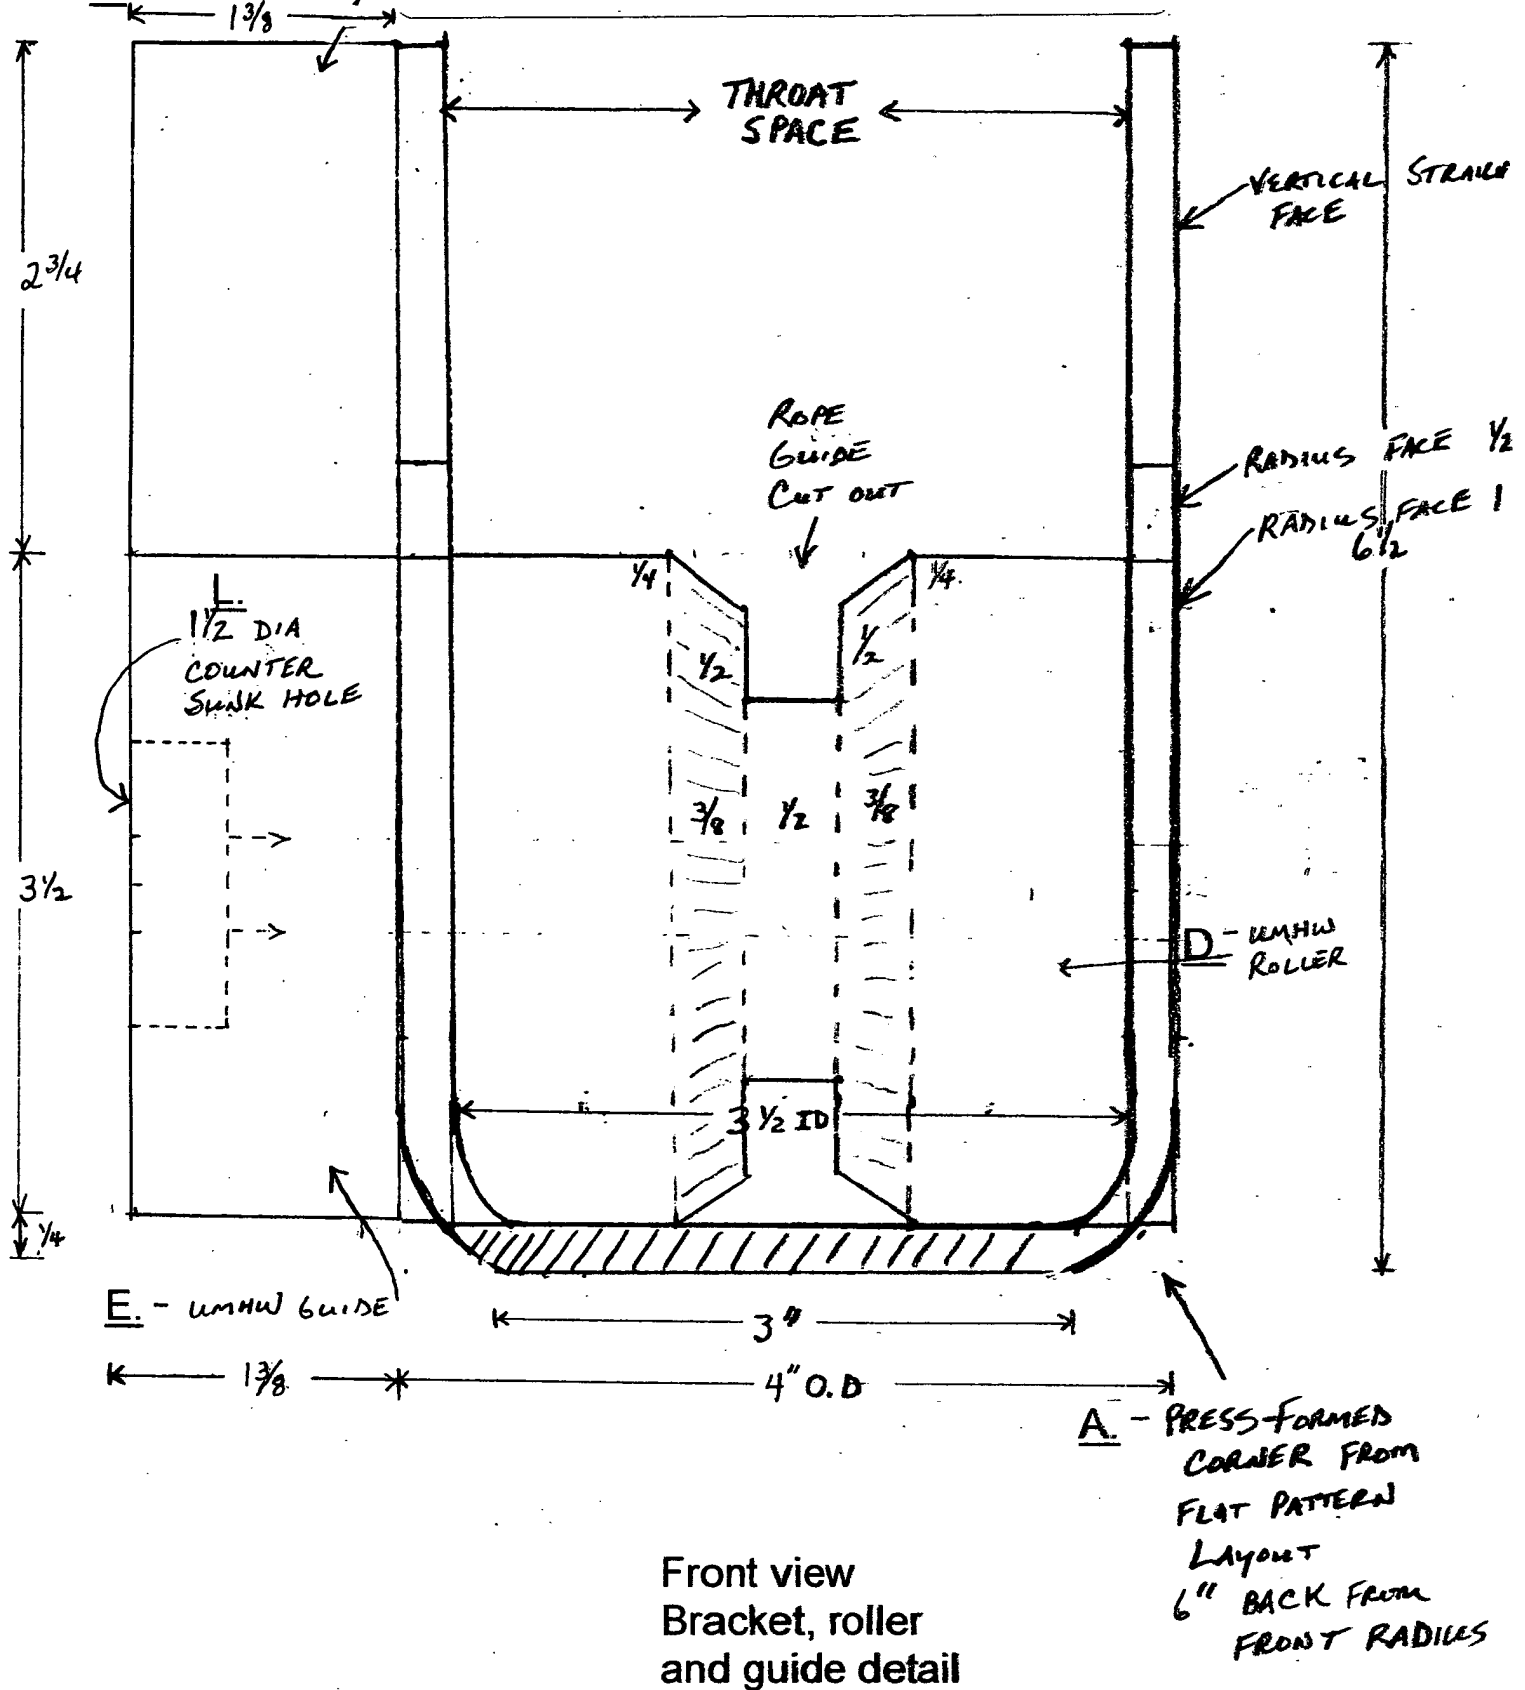 1 3/8
THROAT
SPACE
VERTICAL
FACE
2 3/4
ROPE
GUIDE
CUT OUT
RADIUS FACE 1/2
RADIUS FACE 1
6 1/2
1/4
1/4
L.
1 1/2 DIA
COUNTER
SUNK HOLE
1/2
1/2
3/8
1/2
3/8
3 1/2
D - UMHW
ROLLER
3 1/2 ID
1/4
E. - UMHW GUIDE
3"
1 3/8
4" O.D
A. - PRESS-FORMED
CORNER FROM
FLAT PATTERN
LAYOUT
6" BACK FROM
FRONT RADIUS
Front view
Bracket, roller
and guide detail